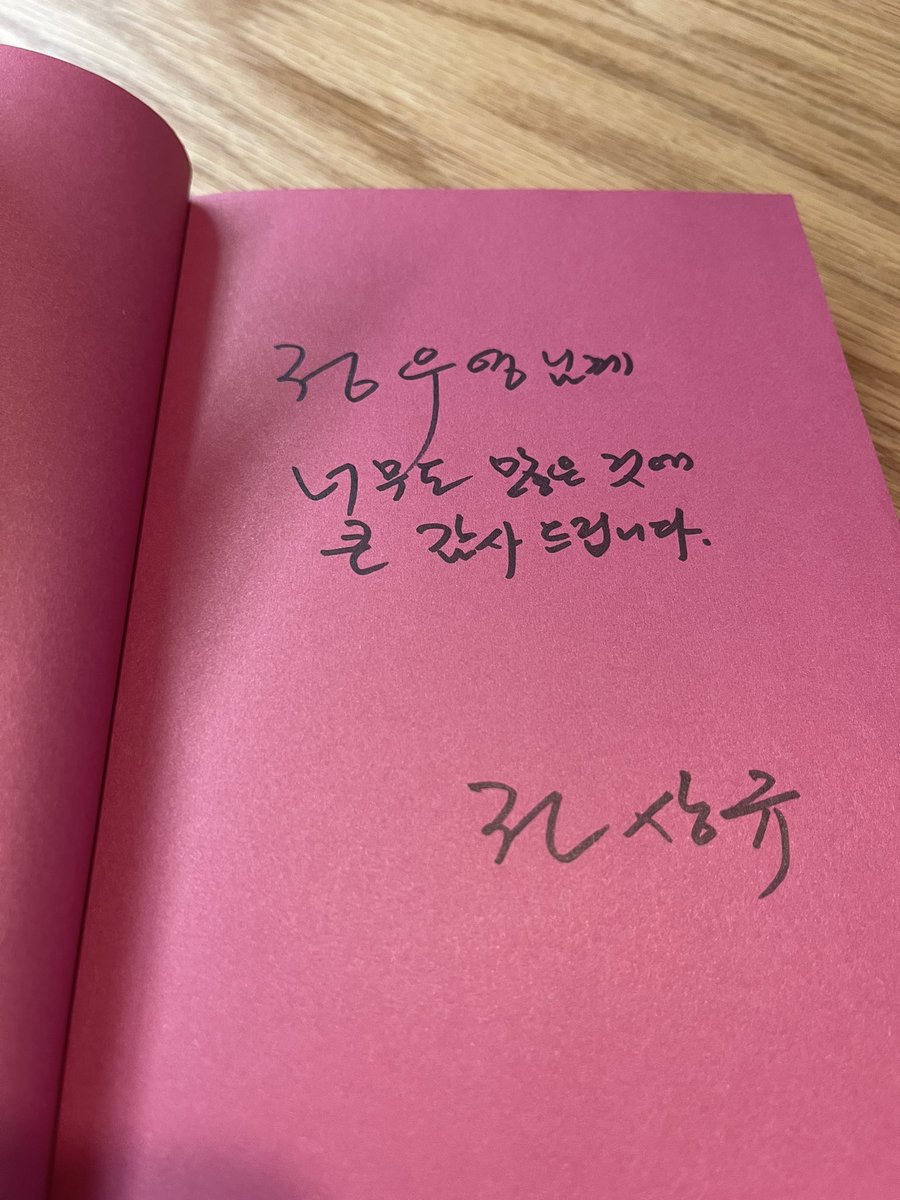 정우영님께
너무도 많은 것에
큰 감사드립니다.
전상규